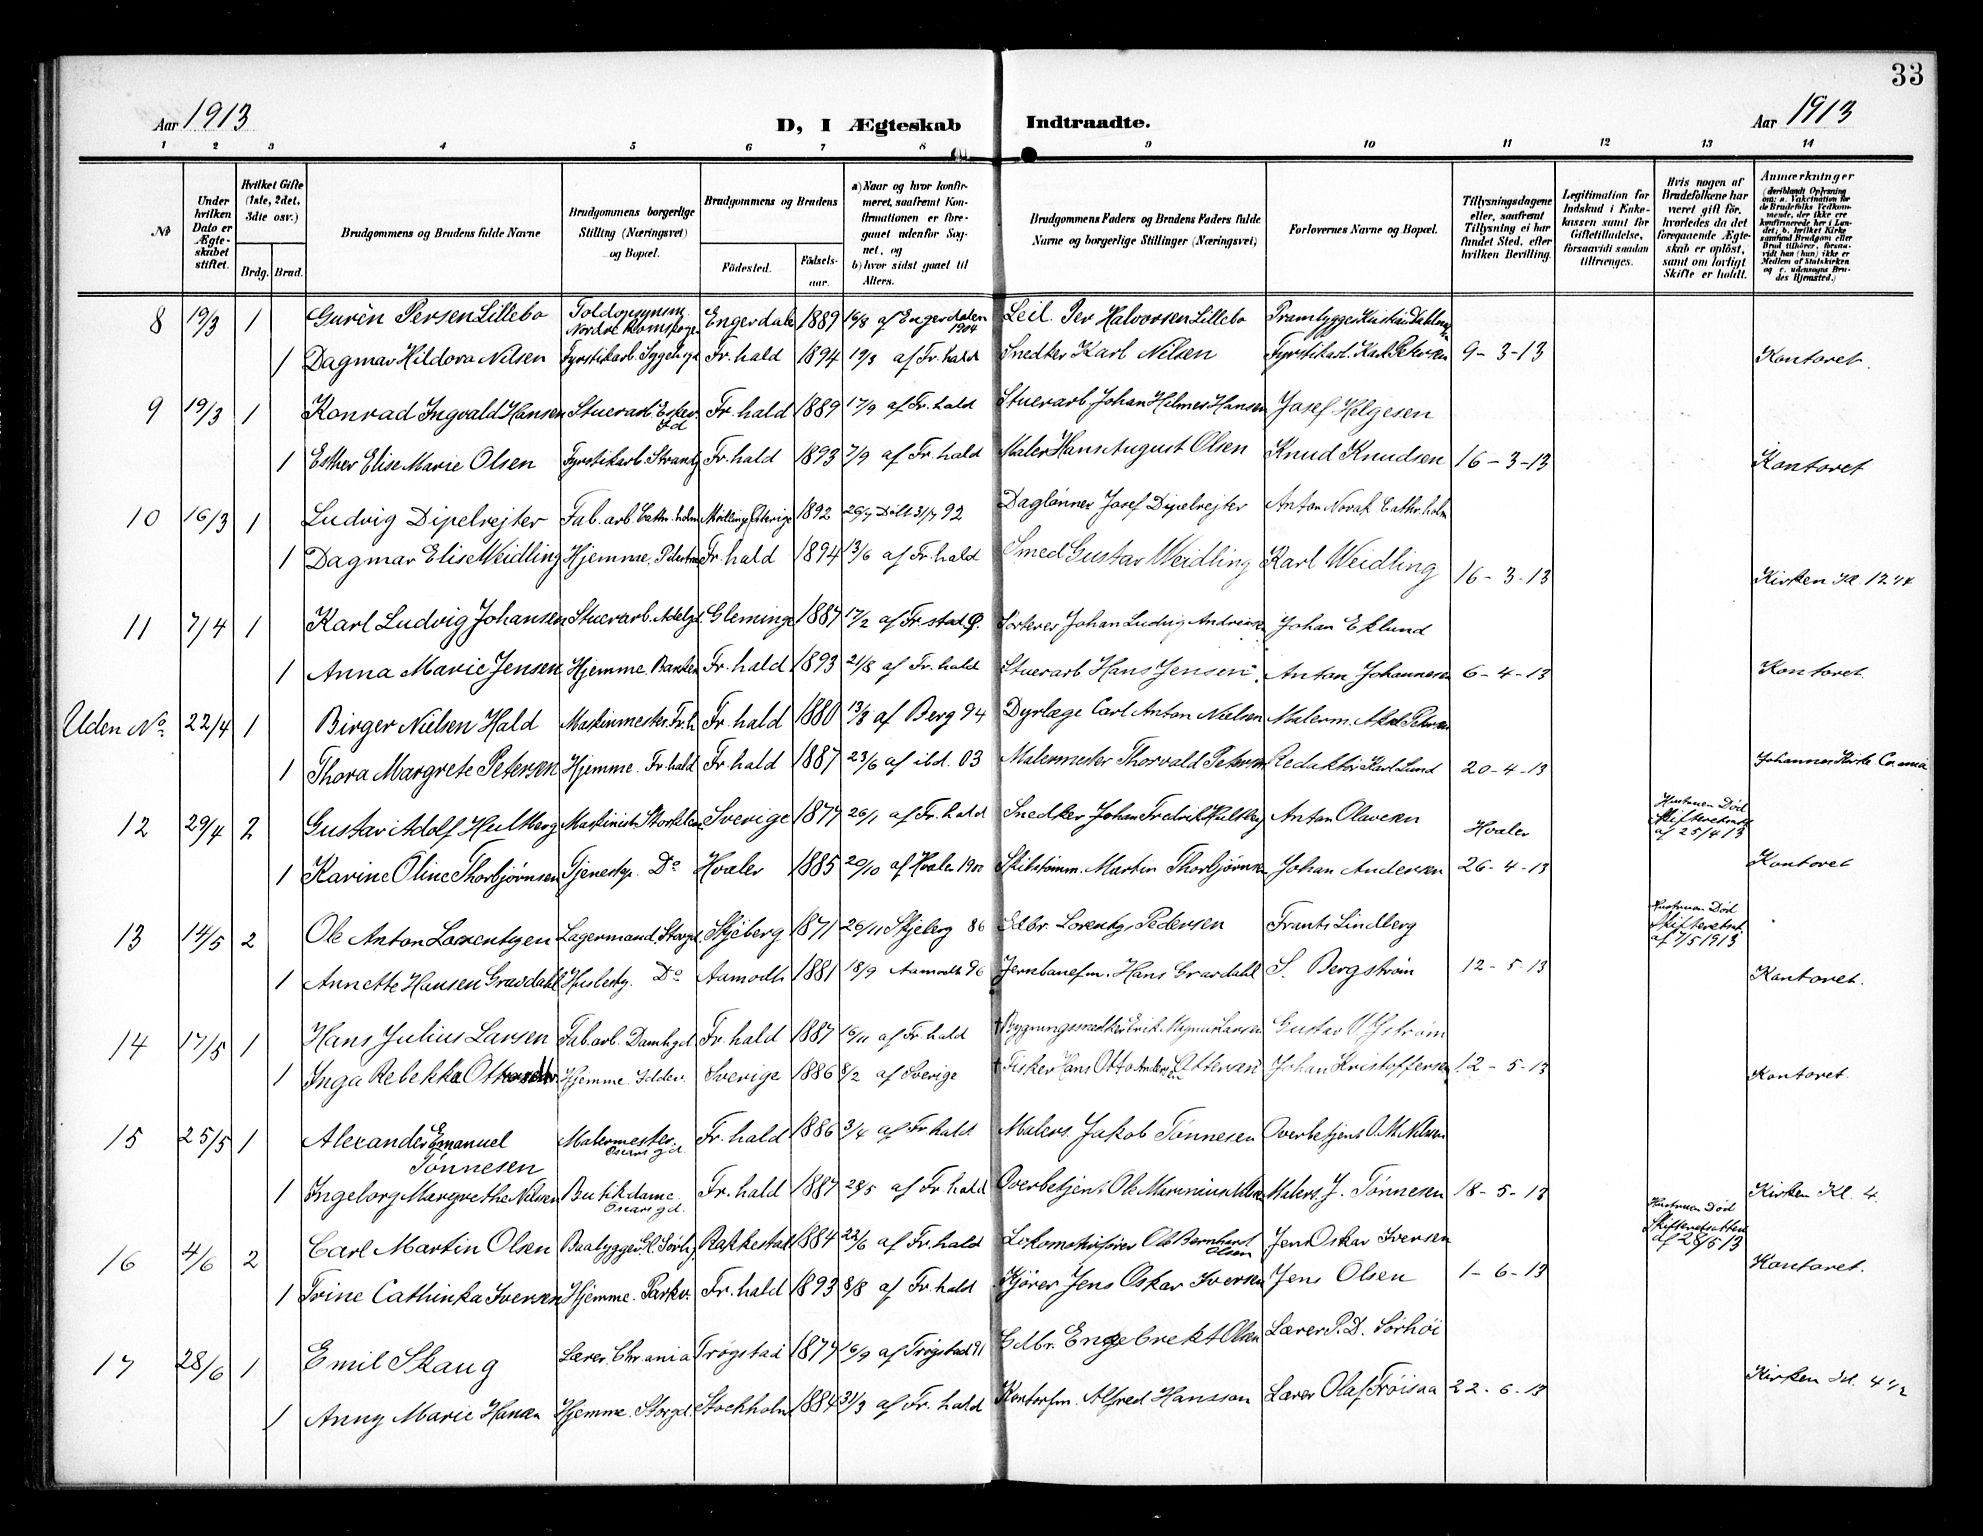 33
Aar 1913
D, I Ægteskab Indtraadte.
Aar 1913
1 2 3 4 5 6 7 8 9 10 11 12 13 14
No
Under hvilken Dato er Ægteskabet stiftet.
Hvilket Gifte (1ste, 2det, 3die osv.)
Brdg. Brud.
Brudgommens og Brudens fulde Navne
Brudgommens borgerlige Stilling (Næringsvei) og Bopæl.
Brudgommens og Brudens
Födested. Födselsaar.
a) Naar og hvor konfirmeret, saafremt Konfirmationen er foregaaet udenfor Sognet, og
b) hvor sidst gaaet til Alters.
Brudgommens Faders og Brudens Faders fulde Navne og borgerlige Stillinger (Næringsvei)
Forlovernes Navne og Bopæl.
Tillysningsdagene eller, saafremt Tillysning ei har fundet Sted, efter hvilken Bevilling.
Legitimation for Indskud i Enkekassen samt for Giftetilladelse, forsaavidt saadan tiltrænges.
Hvis nogen af Brudefolkene har været gift för, hvorledes da det foregaaende Ægteskab er oplöst, samt om lovligt Skifte er holdt.
Anmærkninger (deriblandt Oplysning om: a. Vakcination for de Brudefolks Vedkommende, der ikke ere konfirmerede her i Landet; b. hvilket Kirkesamfund Brudgom eller Brud tilhører, forsaavidt han (hun) ikke er Medlem af Statskirken og c. udensogns Brudes Hjemsted.)
8 19/3 1 Gurèn Persen Lillebo Engerdalen 1889 af Engerdalen 1904 Leil. Per Halvorsen Lillebo
1 Dagmar Hildora Nilsen Fyrstikarb. Fr. hald 1894 19/3 af Fr. hald Snedker Karl Nilsen Fyrstikarb. Karl Petersen 9-3-13 Kontoret.
9 19/3 1 Konrad Ingvald Hansen Stuerarb. Fr. hald 1889 17/9 af Fr. hald Stuerarb. Johan Hilmer Hansen Josef Helgesen
1 Esther Elise Marie Olsen Fyrstikarb. Strandg Fr. hald 1893 7/9 af Fr. hald Maler Hans August Olsen Knud Knudsen 16-3-13 Kontoret
10 16/3 1 Ludvig Dipelrejter Fab. arb. Cathr. holm 1892 Daglønner Josef Dipelrejter Anton Novak Cathr. holm
1 Dagmar Elise Weidling Hjemme. Fr. hald 1894 13/6 af Fr. hald Smed Gustav Weidling Karl Weidling 16-3-13 Kirken kl 12 1/2
11 7/4 1 Karl Ludvig Johansen Stuerarb. Adelgd. Gleminge 1887 17/2 af Fr. stad Johan Ludvig Andersen Johan Eklund
1 Anna Marie Jensen Hjemme Banken Fr. hald 1893 21/8 af Fr. hald Stuerarb Hans Jensen Anton Johannesen 6-4-13 Kontoret
Uden No. 22/4 1 Birger Nielsen Hald Maskinmester Fr. h. Fr. hald 1880 13/3 af Berg 94 Dyrlæge Carl Anton Nielsen Malerm. Axel Petersen
1 Thora Margrete Petersen Hjemme. Fr. hald Fr. hald 1887 23/6 af ibd. 03 Malermester Thorvald Petersen Redaktør Karl Lund 20-4-13 Johannes Kirke
12 29/4 2 Gustav Adolf Hultberg Maskinist. Sverige 1877 26/1 af Fr. hald Snedker Johan Fredrik Hultberg Anton Olavesen Hvaler Hustruen Død Skifteretsatt af 25/4 13
1 Karine Oline Thorbjørnsen Tjenestp. Do Hvaler 1885 20/10 af Hvaler 1900 Skibstømm. Martin Thorbjørnsen Johan Andersen 26-4-13 Kontoret
13 14/5 2 Ole Anton Lorentzen Lagermand. Storgd. Skjeberg 1871 26/11 Skjeberg 86 Gdbr. Lorentz Pedersen Frants Lindberg Hustruen Død Skifteretsat. af 7/5 1913
1 Annette Hansen Gravdahl Husbesty. Do Aamodt 1881 18/9 Aamodt 96 Jernbanefm. Hans Gravdahl S. Bergström 12-5-13 Kontoret.
14 17/5 1 Hans Julius Larsen Fab. arb. Damhgd Fr. hald 1887 16/11 af Fr. hald † Bygningssnedker Erik Magnus Larsen Gustav
1 Inga Rebekka Hjemme. Sverige 1886 8/2 af Sverige † Fisker Hans Otto Andersen Ottersen Johan Kristoffersen 12-5-13 Kontoret.
15 25/5 1 Alexander Emanuel Tönnesen Malermester. Oscarsgd. Fr. hald 1886 3/4 af Fr hald. Malerm. Jakob Tönnesen Overbetjent O. M. Nilsen
1 Ingeborg Margrethe Nilsen Butikdame. Oscarsgd. Fr. hald 1887 28/5 af Fr hald Overbetjent. Ole Marinius Nilsen Malerm. J. Tönnesen 18-5-13 Kirken Kl. 4.
16 4/6 2 Carl Martin Olsen Baabygger Rakkestad 1884 22/6 af Fr. hald Lokomotivfører Ole Bernhard Olsen Jens Oskar Iversen Hustruen Død Skifteretsattest af 28/5 13
1 Trine Cathinka Iversen Hjemme. Parkv. Fr. hald 1893 8/8 af Fr. hald Kjører Jens Oskar Iversen Jens Olsen 1-6-13 Kontoret.
17 28/6 1 Emil Skaug Lærer. Chr.ania Trøgstad 1877 16/9 af Trøgstad 91 Gdbr. Engebrekt Olsen Lærer P. D. Sörhöi
1 Anny Marie Hansen Hjemme. Storgd. Stockholm 1884 31/3 af Fr. hald Kontorfm. Alfred Hansson Lærer Olaf Tröisaa 22-6-13 Kirken kl. 4 1/2